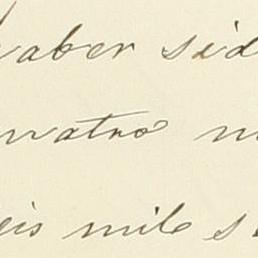 haber sid
uatro m
eis mil s